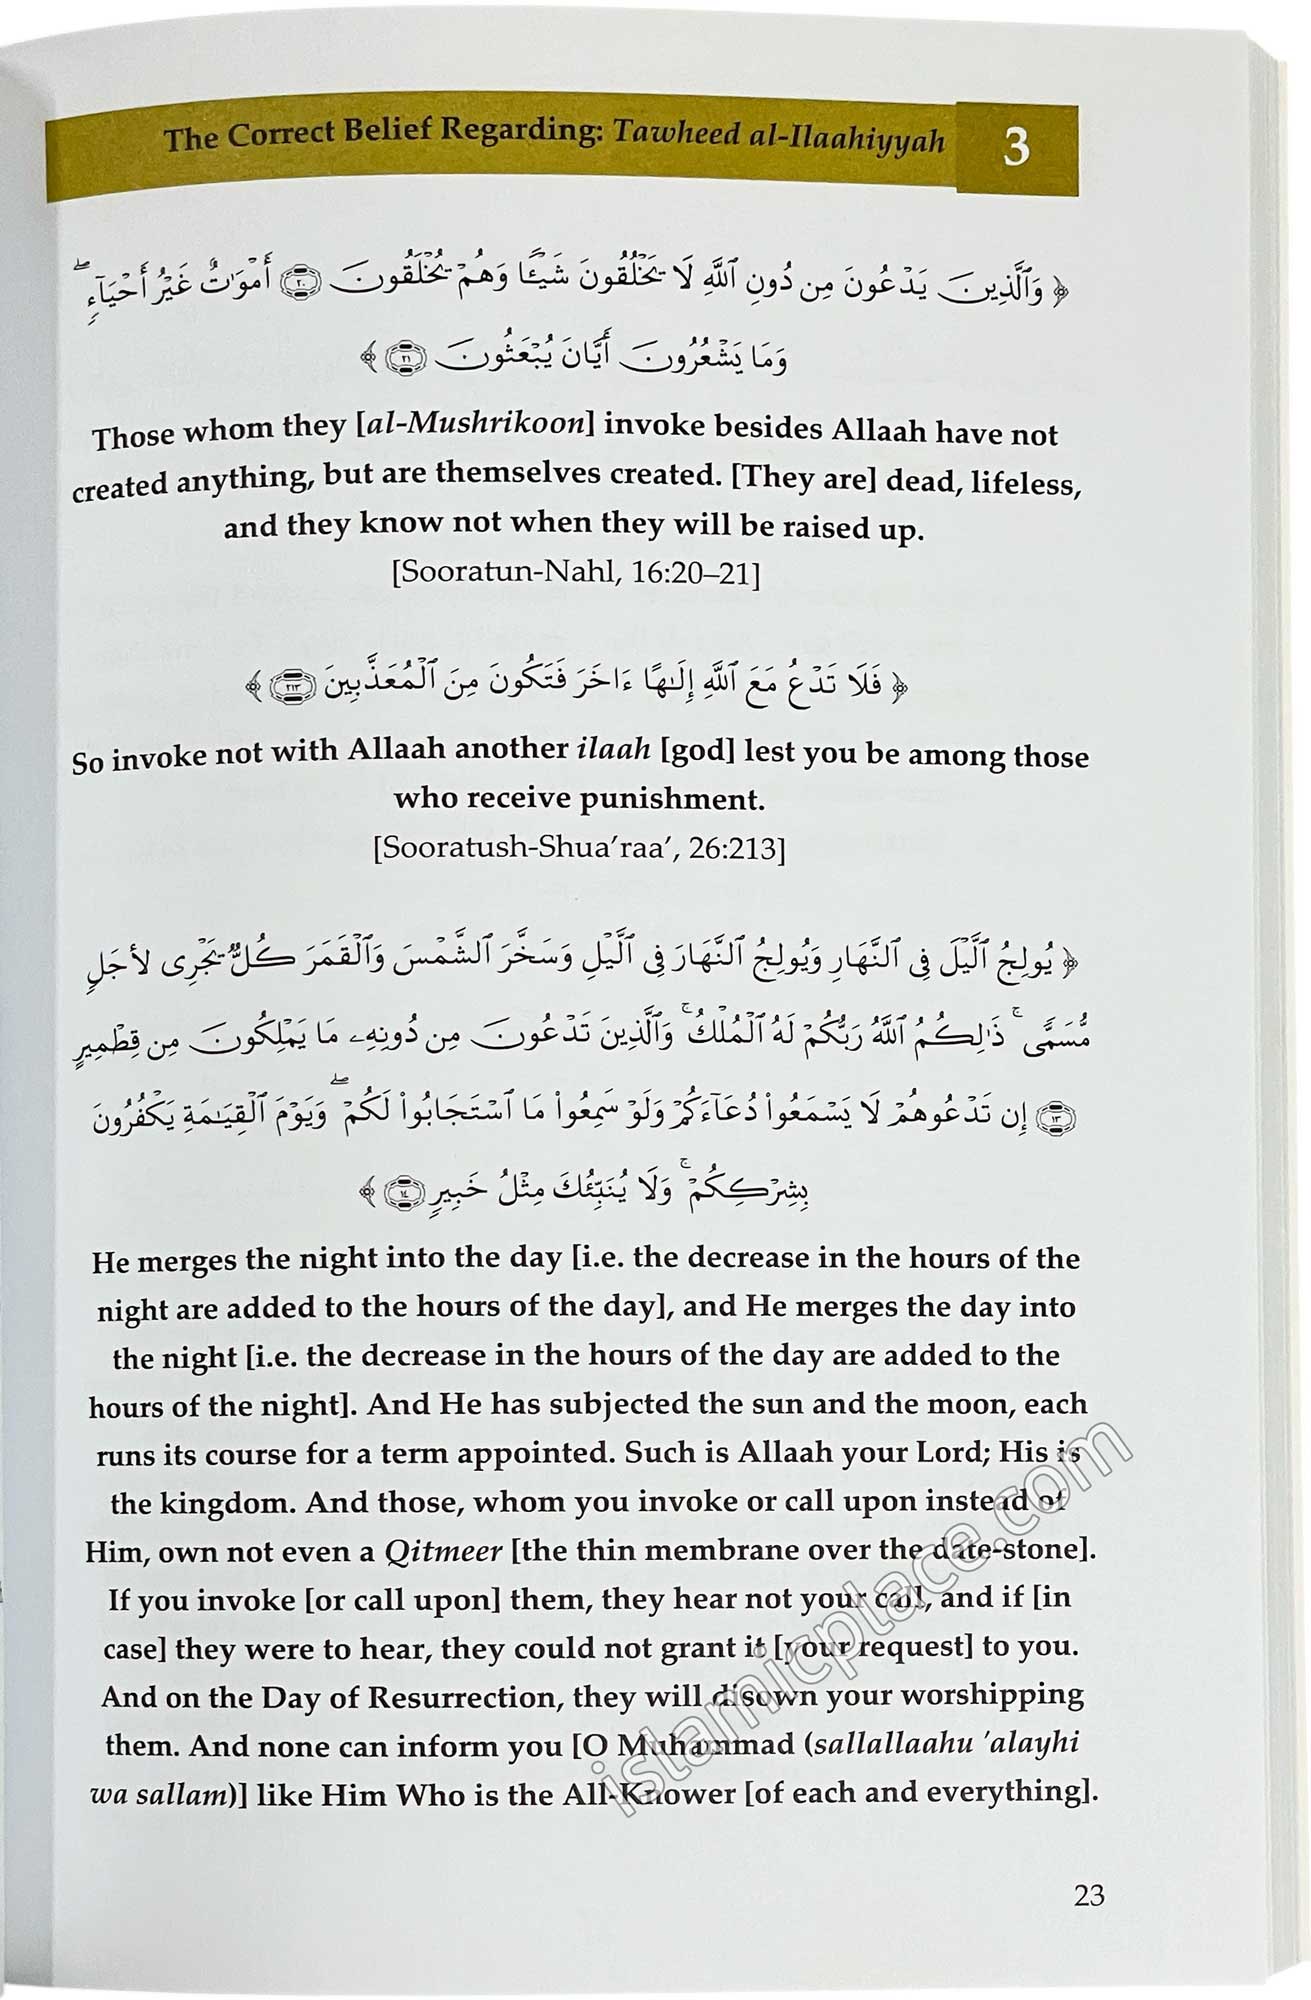 The Correct Belief Regarding: Tawheed al-Ilaahiyyah 3
﴿ وَٱلَّذِينَ يَدْعُونَ مِن دُونِ ٱللَّهِ لَا يَخْلُقُونَ شَيْـًٔا وَهُمْ يُخْلَقُونَ ٢٠ أَمْوَٰتٌ غَيْرُ أَحْيَآءٍ ۖ
وَمَا يَشْعُرُونَ أَيَّانَ يُبْعَثُونَ ٢١ ﴾
Those whom they [al-Mushrikoon] invoke besides Allaah have not
created anything, but are themselves created. [They are] dead, lifeless,
and they know not when they will be raised up.
[Sooratun-Nahl, 16:20–21]
﴿ فَلَا تَدْعُ مَعَ ٱللَّهِ إِلَـٰهًا ءَاخَرَ فَتَكُونَ مِنَ ٱلْمُعَذَّبِينَ ٢١٣ ﴾
So invoke not with Allaah another ilaah [god] lest you be among those
who receive punishment.
[Sooratush-Shua’raa’, 26:213]
﴿ يُولِجُ ٱلَّيْلَ فِى ٱلنَّهَارِ وَيُولِجُ ٱلنَّهَارَ فِى ٱلَّيْلِ وَسَخَّرَ ٱلشَّمْسَ وَٱلْقَمَرَ كُلٌّ يَجْرِى لِأَجَلٍ
مُّسَمًّى ۚ ذَٰلِكُمُ ٱللَّهُ رَبُّكُمْ لَهُ ٱلْمُلْكُ ۚ وَٱلَّذِينَ تَدْعُونَ مِن دُونِهِۦ مَا يَمْلِكُونَ مِن قِطْمِيرٍ
١٣ إِن تَدْعُوهُمْ لَا يَسْمَعُوا۟ دُعَآءَكُمْ وَلَوْ سَمِعُوا۟ مَا ٱسْتَجَابُوا۟ لَكُمْ ۖ وَيَوْمَ ٱلْقِيَـٰمَةِ يَكْفُرُونَ
بِشِرْكِكُمْ ۚ وَلَا يُنَبِّئُكَ مِثْلُ خَبِيرٍ ١٤ ﴾
He merges the night into the day [i.e. the decrease in the hours of the
night are added to the hours of the day], and He merges the day into
the night [i.e. the decrease in the hours of the day are added to the
hours of the night]. And He has subjected the sun and the moon, each
runs its course for a term appointed. Such is Allaah your Lord; His is
the kingdom. And those, whom you invoke or call upon instead of
Him, own not even a Qitmeer [the thin membrane over the date-stone].
If you invoke [or call upon] them, they hear not your call, and if [in
case] they were to hear, they could not grant it [your request] to you.
And on the Day of Resurrection, they will disown your worshipping
them. And none can inform you [O Muhammad (sallallaahu ’alayhi
wa sallam)] like Him Who is the All-Knower [of each and everything].
islamicplace.com
23